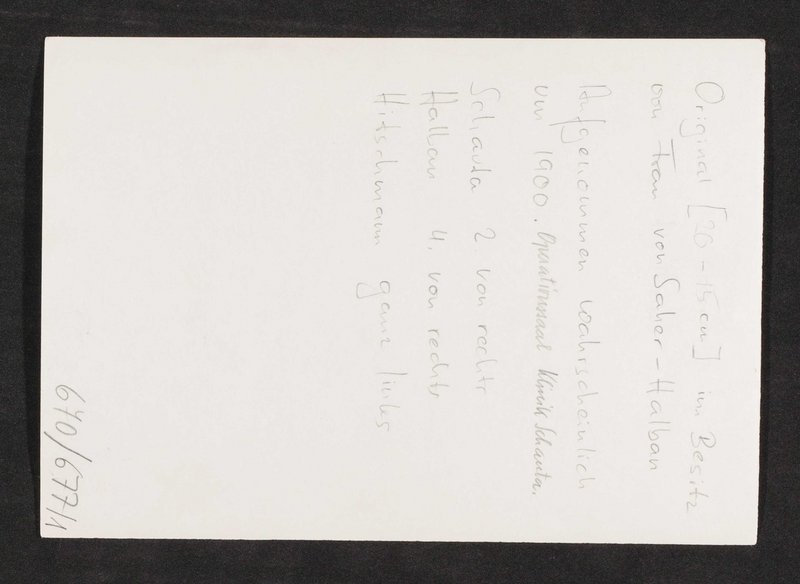 Original [20-15 cm] im Besitz
von Frau von Saher-Halban
Aufgenommen wahrscheinlich
um 1900. Operationssaal Klinik Schauta.
Schauta 2. von rechts
Halban 4. von rechts
Hitschmann ganz links
640/677/1